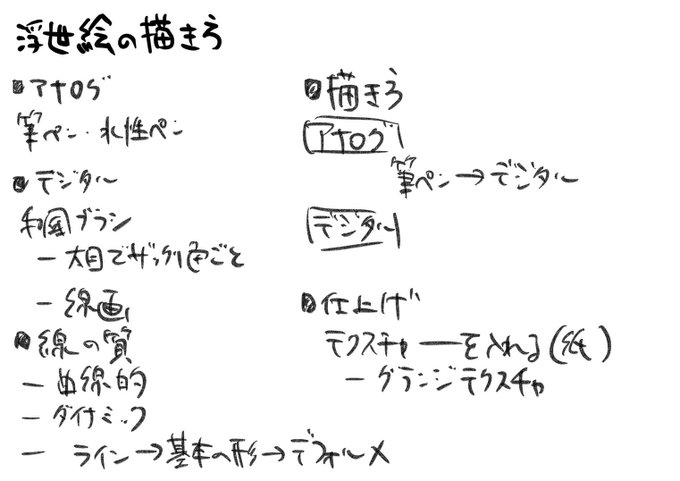 浮世絵の描きろ
アナログ
筆ペン・水性ペン
デジタル
和風ブラシ
― 太目でザックリ色ごと
― 線画
線の質
― 曲線的
― ダイナミック
― ライン→基本の形→デフォルメ
描きろ
アナログ
筆ペン→デジタル
デジタル
仕上げ
テクスチャーを入れる(紙)
― グランジテクスチャ